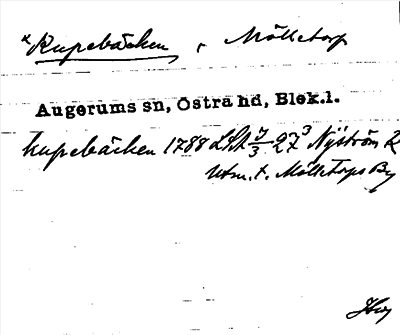 *Kupebäcken, Mölletorp
Augerums sn, Östra hd, Blek.l.
Kupebäcken 1788 LSA 27³ Nyström
Utm. t. Mölletorps By